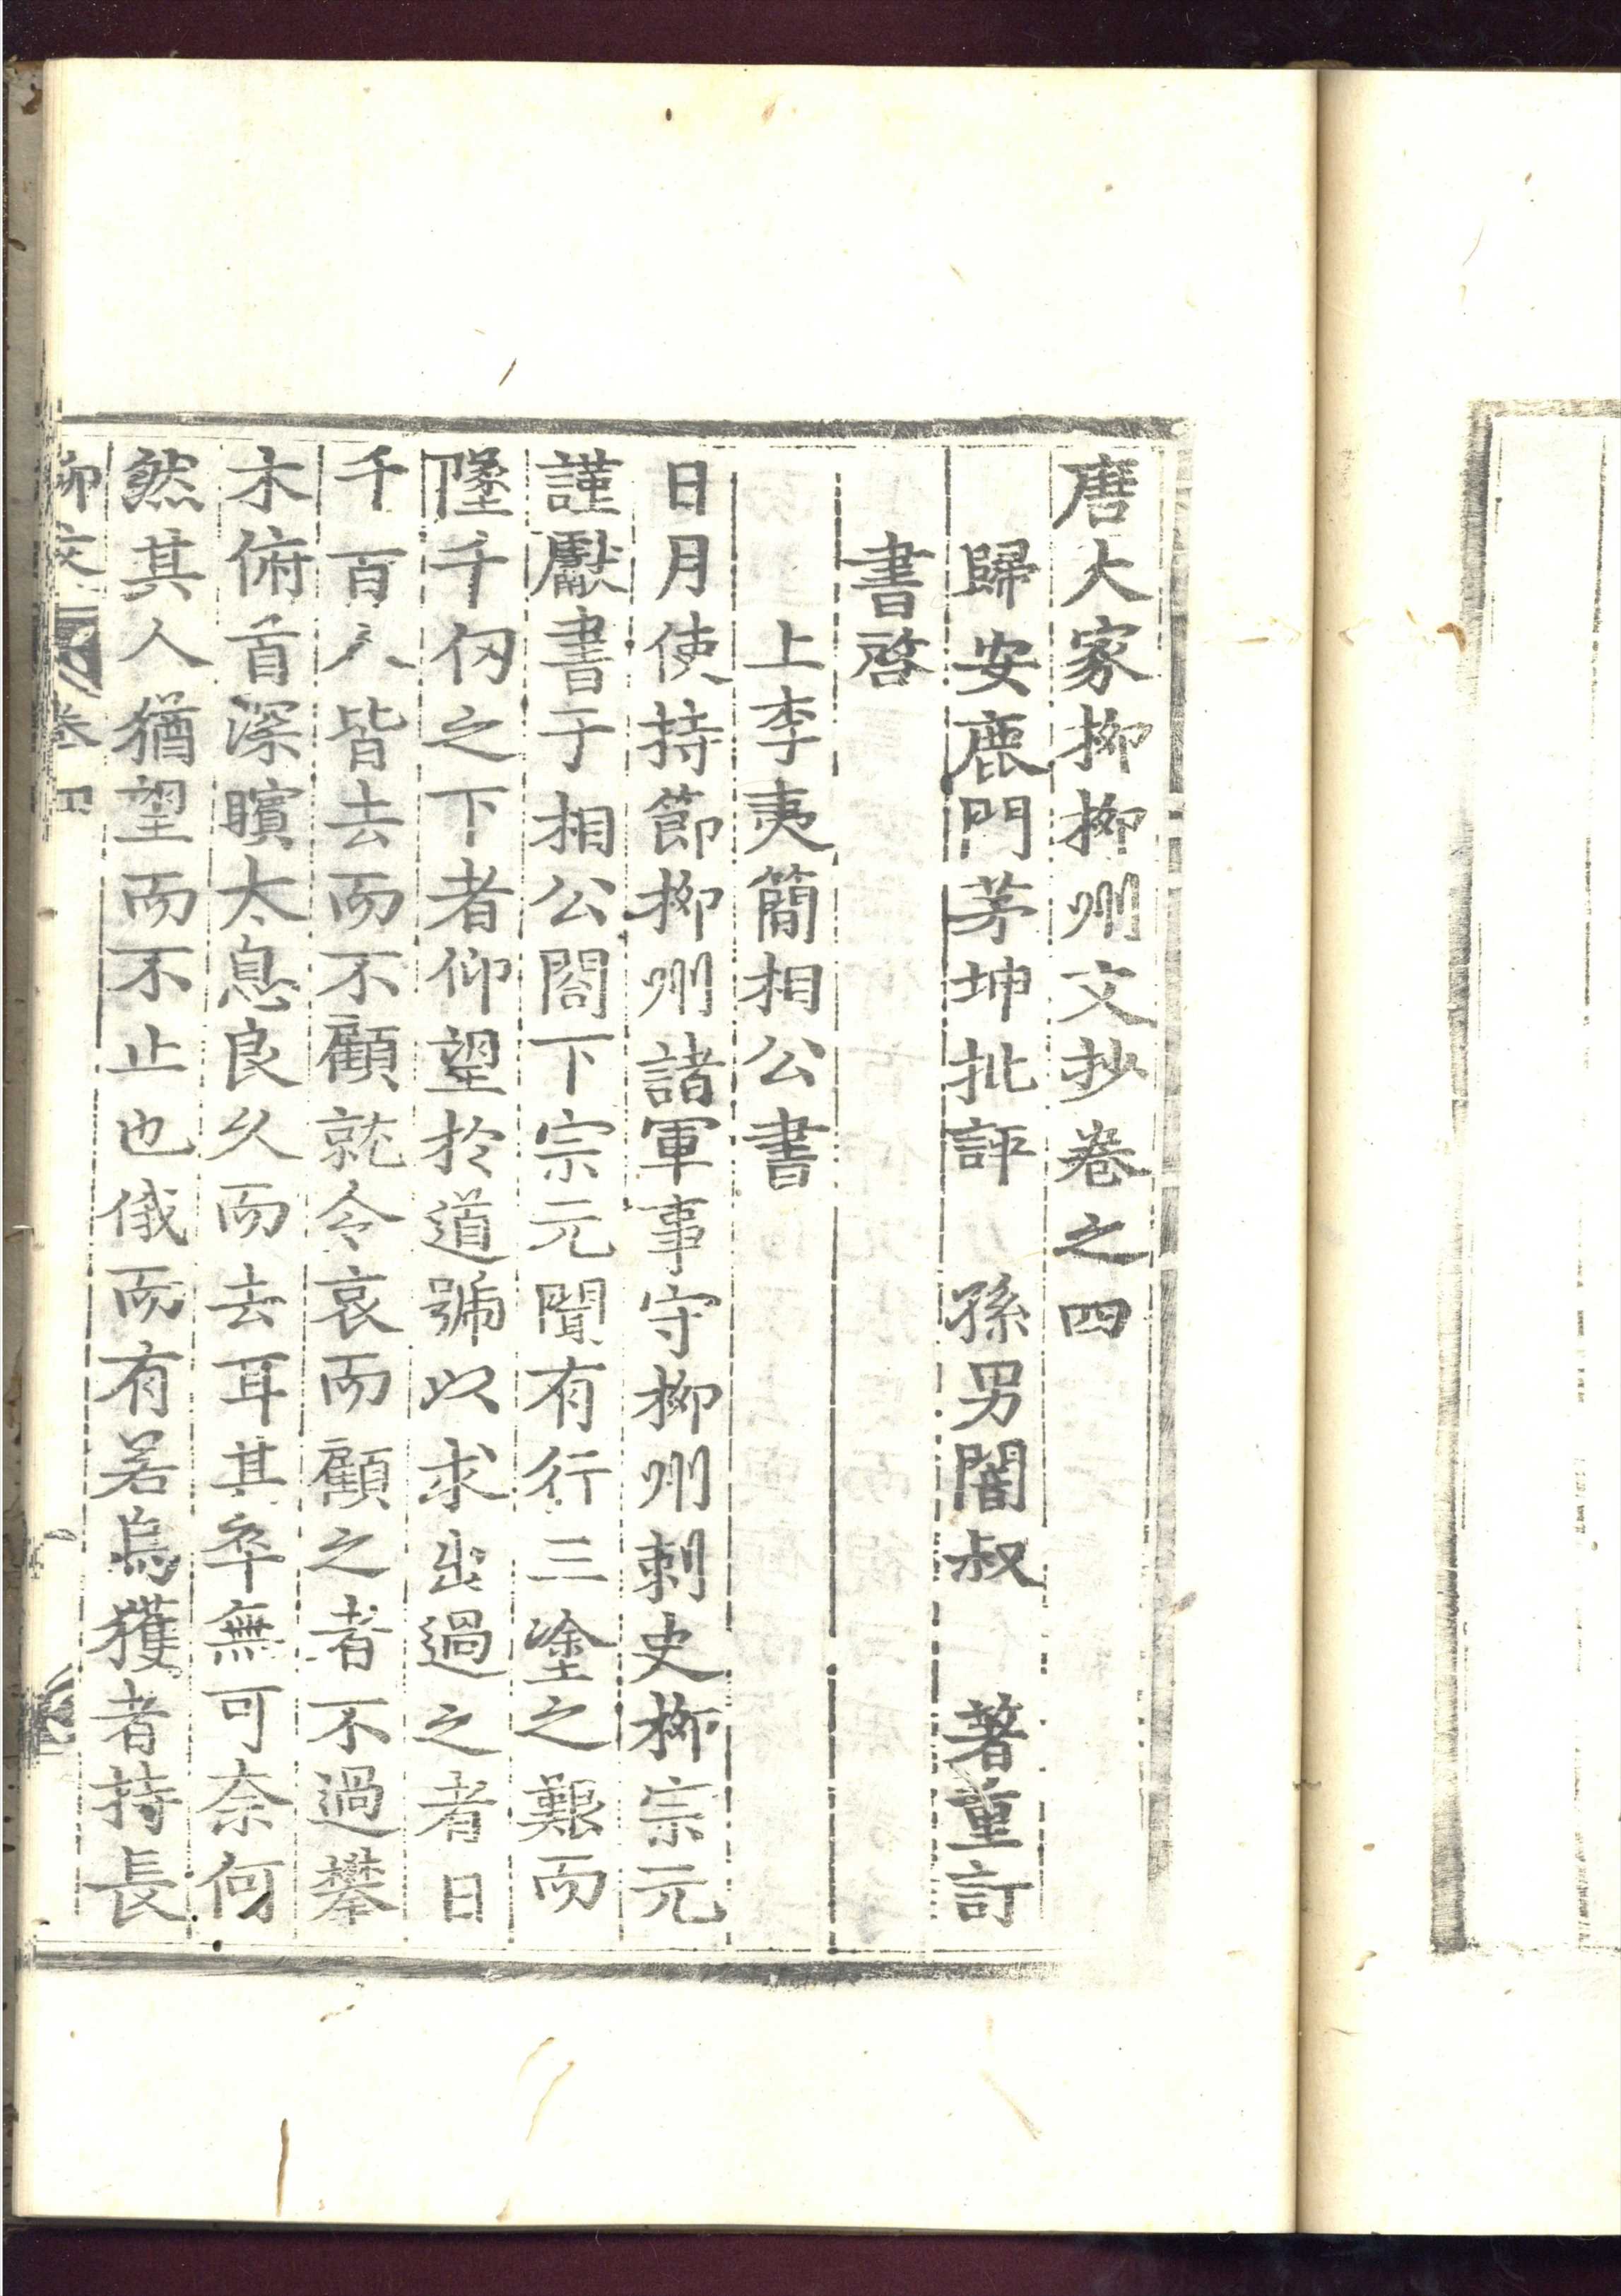 唐大家柳柳州文抄卷之四
歸安鹿門茅坤批評　孫男闇叔　著重訂
書啓
上李夷簡相公書
日月使持節柳州諸軍事守柳州刺史柳宗元
謹獻書于相公閤下宗元聞有行三塗之艱而
墜千仞之下者仰望於道號以求出過之者日
千百人皆去而不顧就令哀而顧之者不過攀
木俯首深矉太息良久而去耳其卒無可奈何
然其人猶望而不止也俄而有若烏獲者持長
柳文　卷四